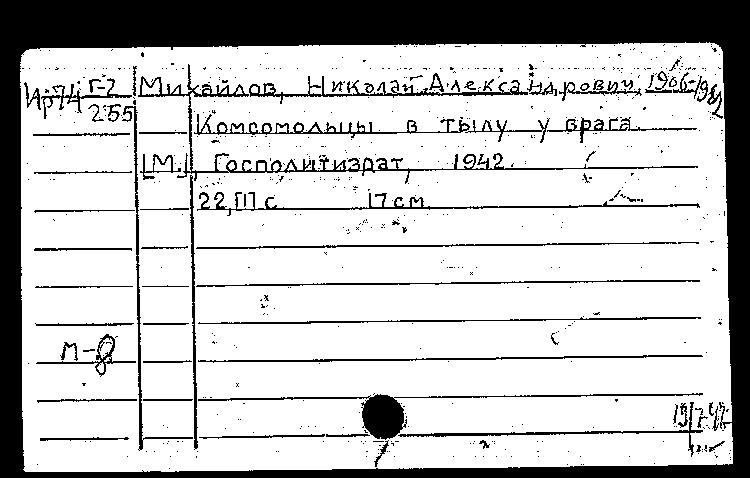 Ир74 Г-2 Михайлов, Николай Александрович, 1906-1982
255
Комсомольцы в тылу у врага.
[М.], Госполитиздат, 1942.
22,[1] с 17 см.
М-8